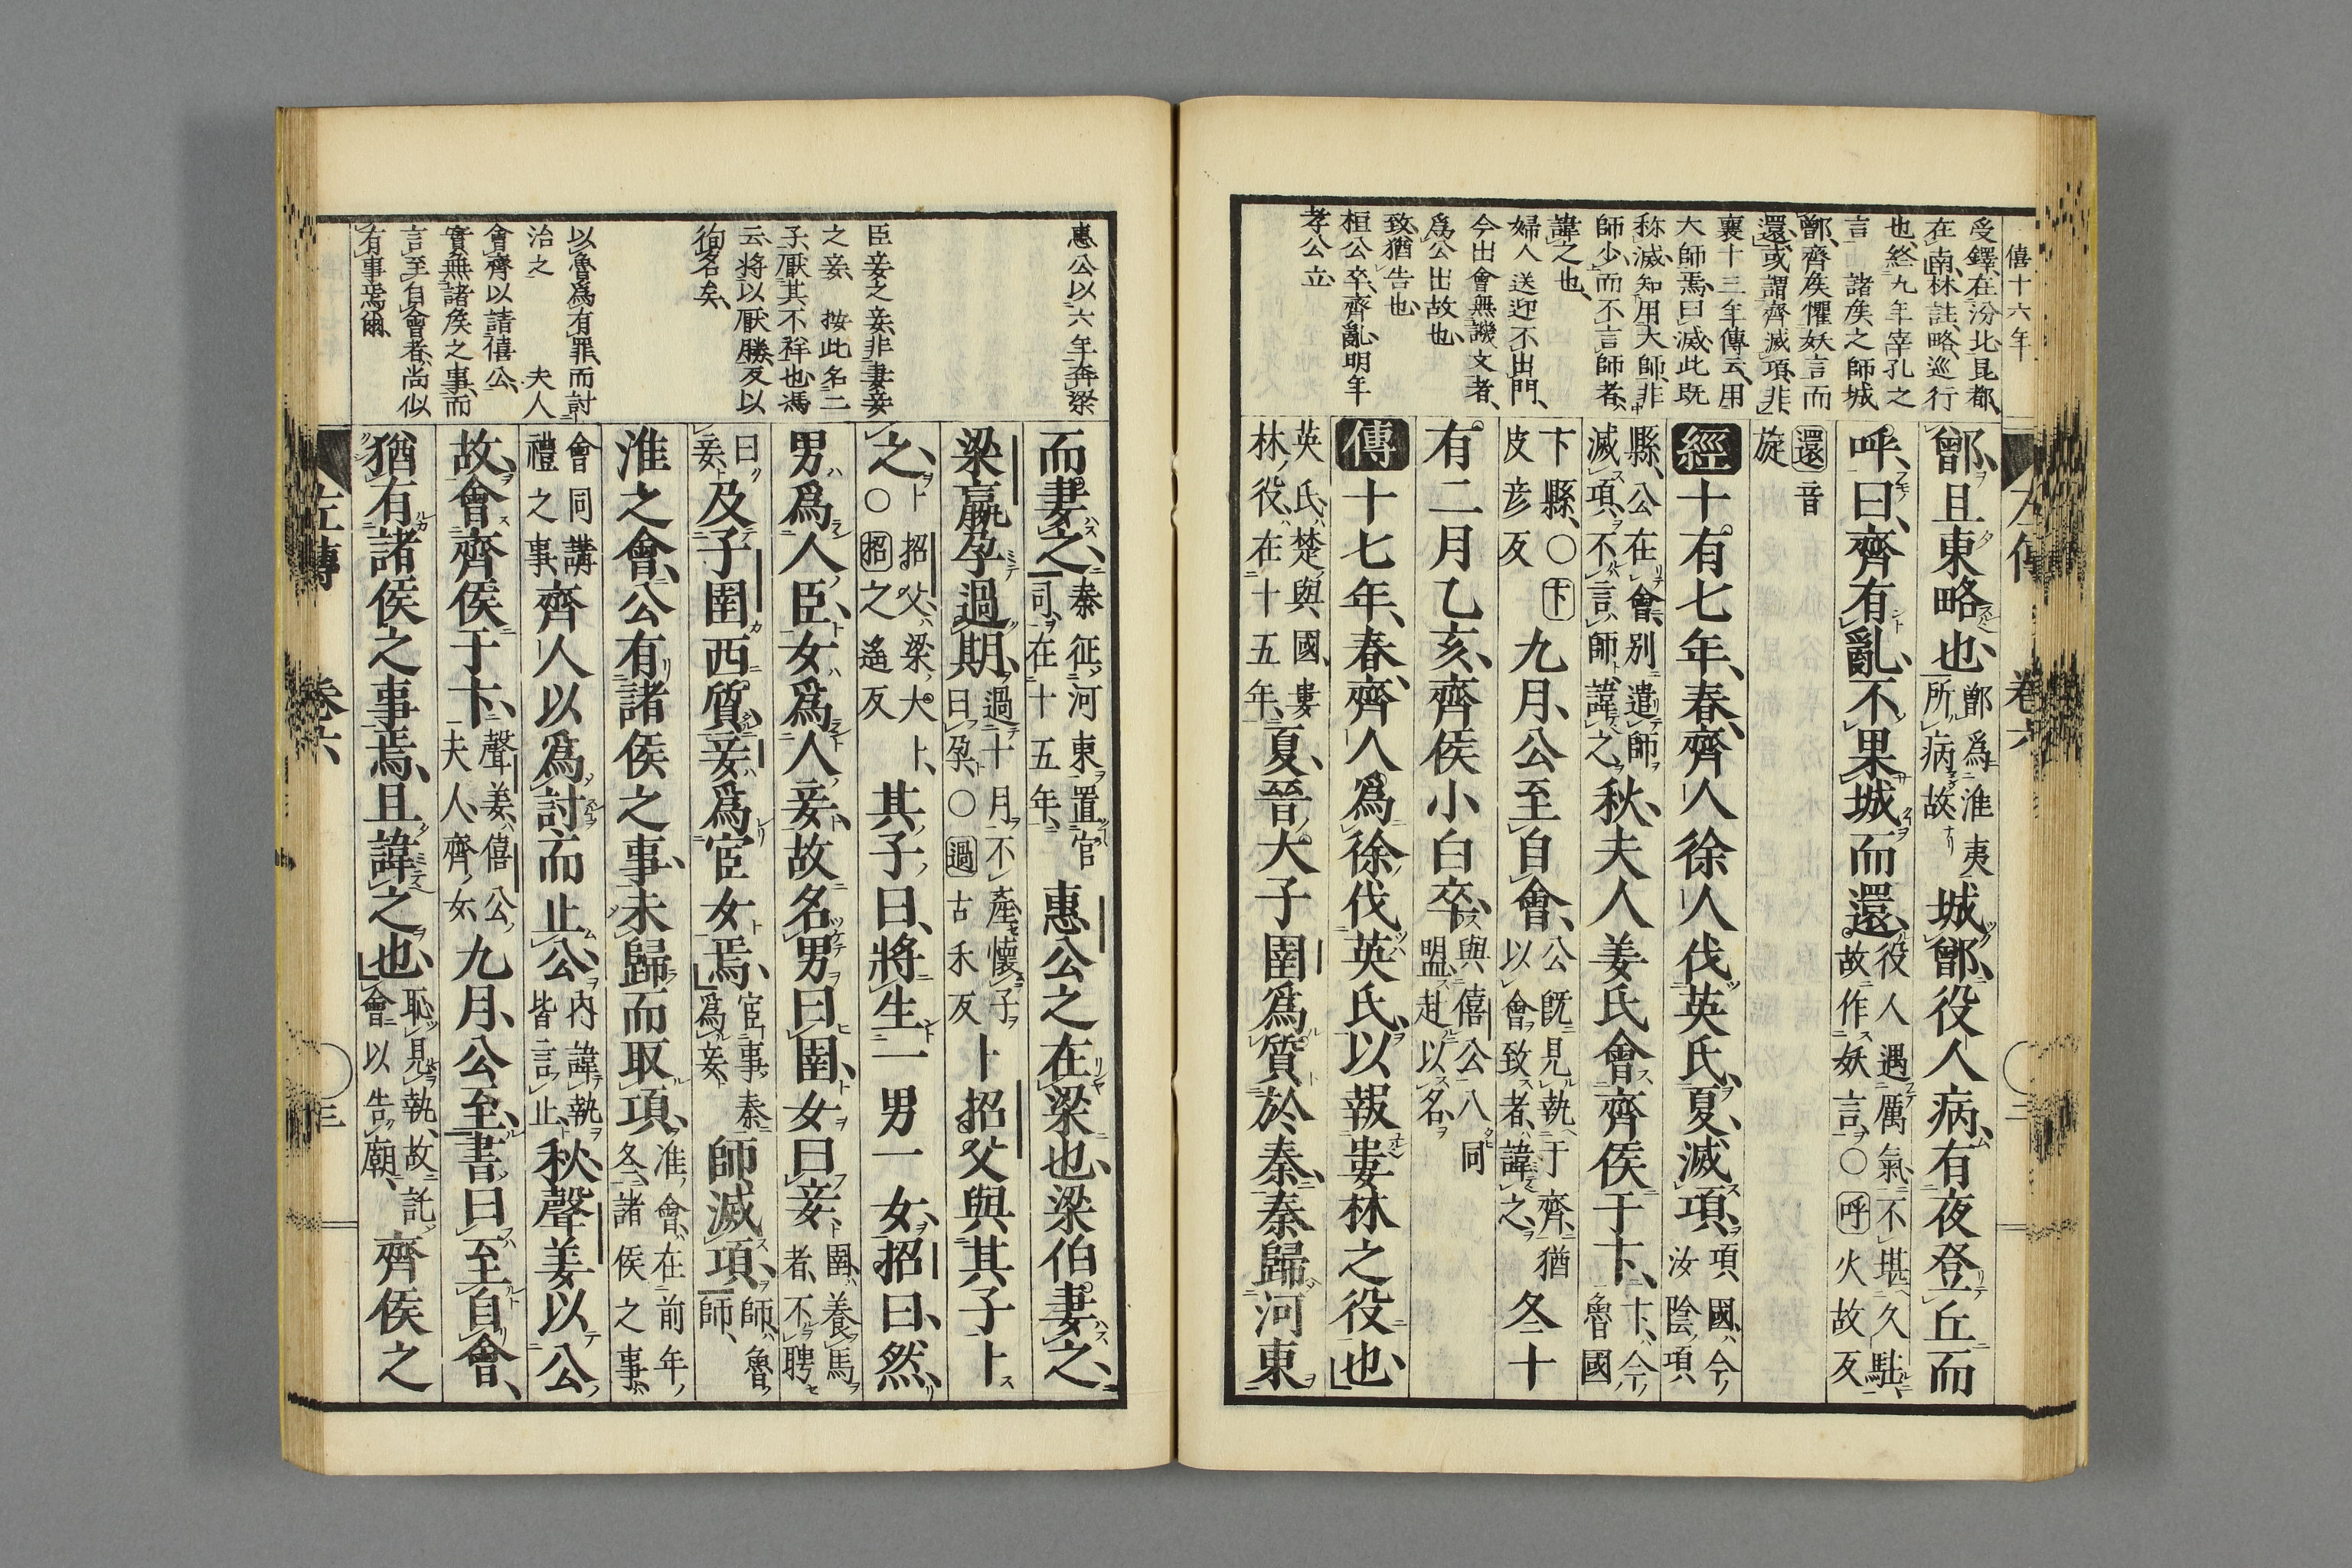 僖十六年
左傳 卷六 二
受鐸在汾北昆都、
在南林註略、巡行
也、終九年宰孔之
言 諸矦之師城
鄫、齊矦懼妖言而
還、或謂齊滅項、非
襄十三年傳云、用
大師焉曰滅、此既
称滅、知用大師、非
師少、而不言師者、
諱之也、
婦人送迎不出門、
今出會無譏文者、
爲公出故也、
致猶告也、
桓公卒、齊亂、明年
孝公立
鄫、且東略也、鄫爲淮夷所病故城鄫、役人病、有夜登丘而
呼、曰、齊有亂、不果城而還、役人遇厲氣、不堪久駐故作妖言○呼火故反
還音旋
經十有七年、春、齊人徐人伐英氏、夏、滅項、項國、今汝陰項
縣、公在會、別遣師滅項、不言師、諱之秋、夫人姜氏會齊侯于卞、卞、今魯國
卞縣、○卞皮彦反九月、公至自會、公既見執于齊、猶以會致者、諱之、冬十
有二月乙亥、齊侯小白卒、與僖公八同盟、赴以名
傳十七年、春、齊人爲徐伐英氏、以報婁林之役也、
英氏、楚與國、婁林役、在十五年、夏、晉大子圉爲質於秦、秦歸河東
惠公以六年奔梁
臣妾之妾、非妻妾
之妾、 按此名二
子、厭其不祥也、馮
云、将以厭勝、反以
徇名矣、
以魯爲有罪、而討
治之 夫人
會齊以請僖公、
實無諸矦之事、而
言至自會者、尚似
有事焉爾、
而妻之、秦征河東置官司、在十五年、惠公之在梁也、梁伯妻之、
梁嬴孕過期、過十月不產、懷子曰孕、○過古禾反卜招父與其子卜
之、招父、梁大卜、○招之遙反其子曰、將生一男一女、招曰、然、
男爲人臣、女爲人妾、故名男曰圉、女曰妾、圉、養馬者、不聘
曰妾、及子圉西質、妾爲宦女焉、宦事秦爲妾、師滅項、師、魯師、
淮之會、公有諸侯之事、未歸而取項、淮會、在前年冬、諸侯之事、
會同講禮之事、齊人以爲討而止公、內諱執、皆言止、秋、聲姜以公
故、會齊侯于卞、聲姜、僖公夫人、齊女、九月、公至、書曰至自會、
猶有諸侯之事焉、且諱之也、恥見執、故託會以告廟、齊侯之
左傳 卷六 三